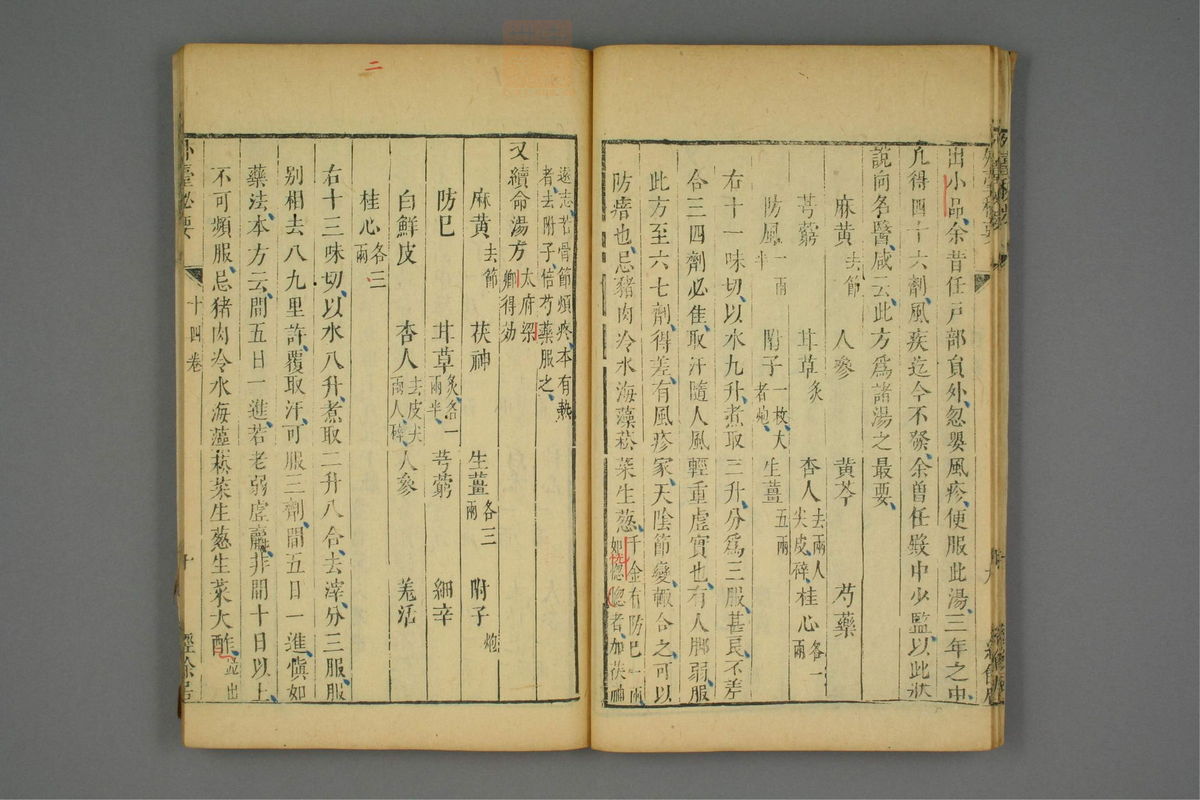 出小品余昔任戸部員外忽嬰風疹便服此湯三年之中
凡得四十六劑風疾迄今不發余曾任殿中少監以此狀
說向名醫咸云此方爲諸湯之最要
麻黄去節 人參 黄芩 芍藥
芎藭 甘草炙 杏人去兩人尖皮碎 桂心各一兩
防風一兩半 附子一枚大者炮 生薑五兩
右十一味切以水九升煮取三升分爲三服甚良不差
合三四劑必佳取汗隨人風輕重虛實也有人脚弱服
此方至六七劑得差有風疹家天陰節變輙合之可以
防瘖也忌豬肉冷水海藻菘菜生葱千金有防巳一兩
如恍惚者加茯神
遠志若骨節煩疼本有熱
者去附子倍芍藥服之
又續命湯方太府梁卿得効
麻黄去節 茯神 生薑各三兩 附子炮
防巳 甘草炙各一兩半 芎藭 細辛
白鮮皮 杏人去皮尖兩人碎 人參 羗活
桂心各三兩
右十三味切以水八升煮取二升八合去滓分三服服
别相去八九里許覆取汗可服三劑間五日一進慎如
藥法本方云間五日一進若老弱虛羸非間十日以上
不可頻服忌豬肉冷水海藻菘菜生葱生菜大酢並出
外臺秘要 十四卷 十 經餘居
二